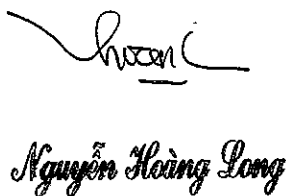 Nguyễn Hoàng Long